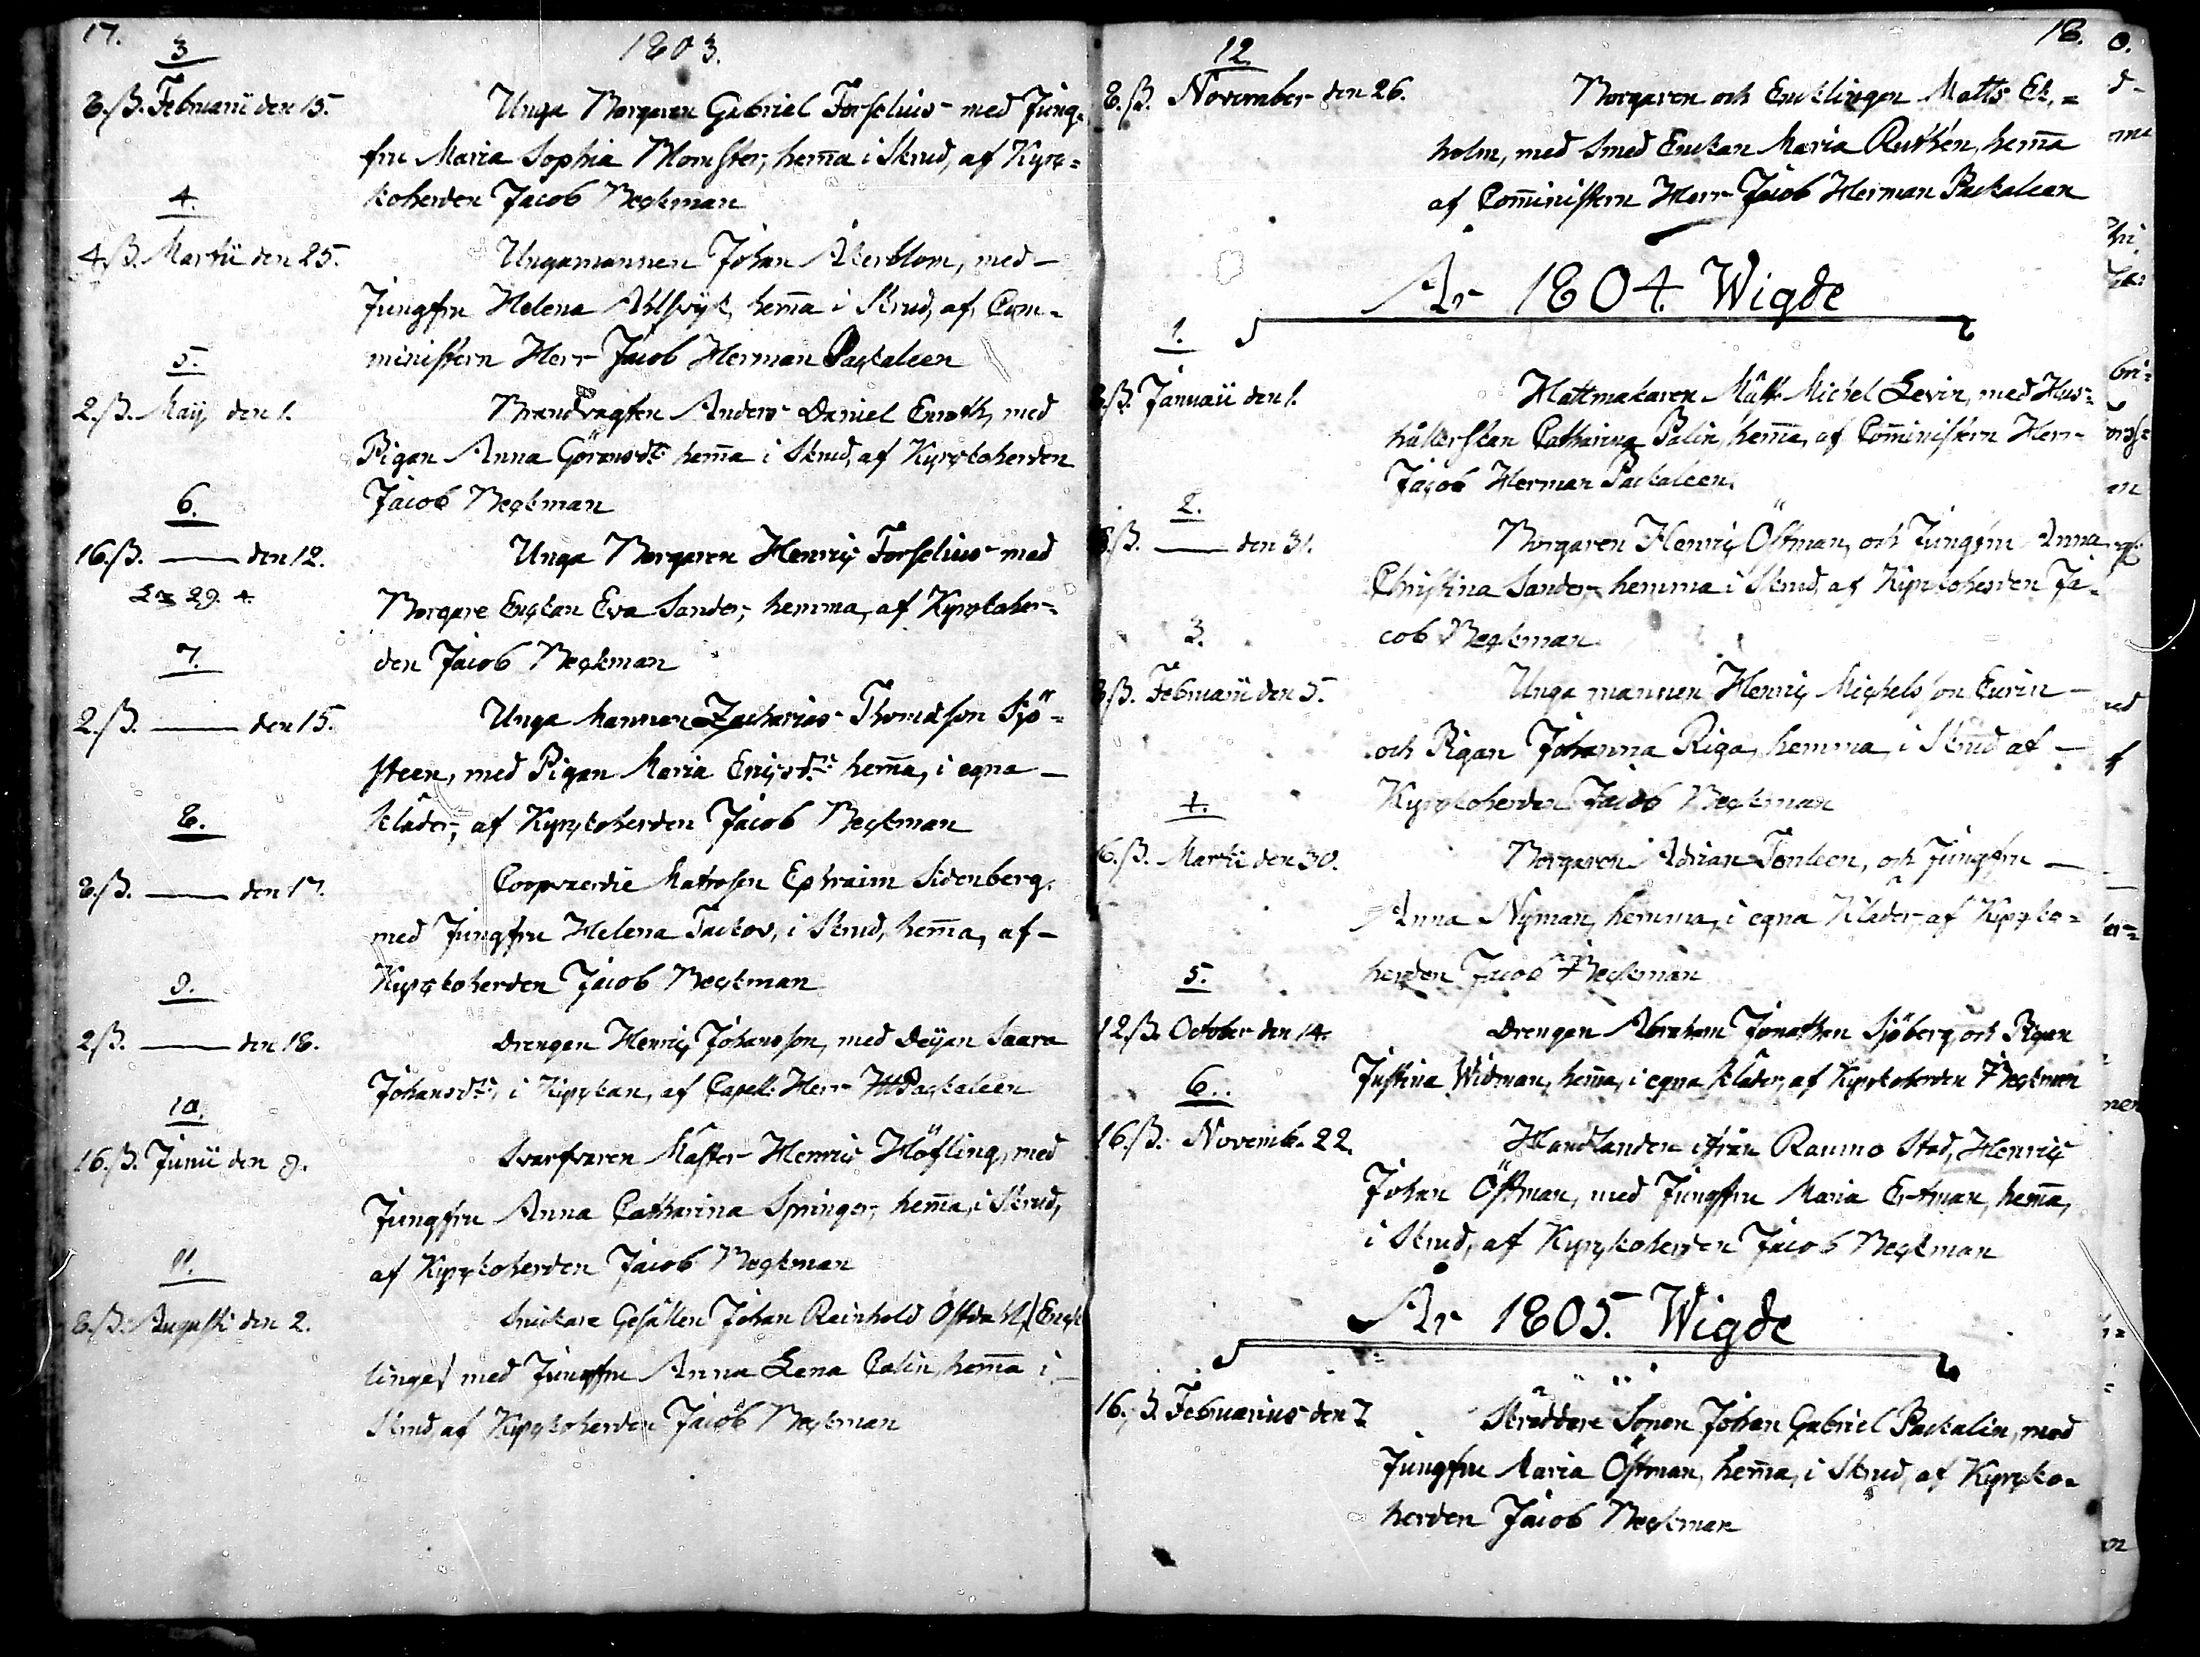 17.
1803.
3
8.ß. Februarii den 15. Unga Borgaren Gabriel Forselius med Jung-
fru Maria Sophia Blomster, hem̄a i Skrud, af Kyrc-
koherden Jacob Beckman
4.
4.ß. Martii den 25. Ungamannen Johan Åkerblom, med
Jungfru Helena Ahlqvist, hem̄a i Skrud, af Com-
ministern Herr Jacob Herman Packaleen
5.
2.ß. Maij den 1. Brandvagten Anders Daniel Enroth, med
Pigan Anna Göransdr. hem̄a i Skrud, af Kyrckoherden
Jacob Beckman
6.
16.ß. — den 12. Unga Borgaren Henric Forselius med
29. 4. Borgare Enckan Eva Sander, hemma, af Kyrckoher-
den Jacob Beckman
7.
2.ß. — den 15. Unga Mannen Zacharias Thomasson Sjö-
steen, med Pigan Maria Ericsdr. hem̄a, i egna
kläder, af Kyrckoherden Jacob Beckman
8.
8.ß. — den 17. Coopvaerdie Matrosen Ephraim Sidenberg,
med Jungfru Helena Tackov, i Skrud, hem̄a, af
Kyrckoherden Jacob Beckman
9.
2ß. — den 18. Drengen Henric Johansson, med Deijan Saara
Johansdr. i Kyrckan, af Capell. Herr Packaleen
10.
16.ß. Junii den 9. Svarfvaren Mäster Henric Höfling, med
Jungfru Anna Catharina Springer, hem̄a, i Skrud,
af Kyrckoherden Jacob Beckman
11.
8.ß. Augusti den 2. Snickare Gesällen Johan Reinhold Östdahl /Enck
linge/ med Jungfru Anna Lena Calin, hem̄a i
Skrud, af Kyrckoherden Jacob Beckman
18.
12.
8.ß. November den 26. Borgaren och Encklingen Matts Ek-
holm, med Smed Enckan Maria Ruthén, hem̄a
af Com̄inistern Herr Jacob Herman Packaleen
År 1804. Wigde
1.
8.ß. Januarii den 1. Hattmakaren Mäst. Michel Levin, med Hus-
hållerskan Catharina Palin, hem̄a, af Com̄inistern Herr
Jacob Herman Packaleen.
2.
ß. — den 31. Borgaren Henric Östman, och Jungfru Anna
Christina Sander, hemma i Skrud, af Kyrckoherden Ja-
cob Beckman
3.
8.ß. Februarii den 5. Unga mannen Henric Michelsson Eurin
och Pigan Johanna Riga, hemma, i Skrud af
Kyrckoherden Jacob Beckman
4.
6.ß. Martii den 30. Borgaren Adrian Tenleen, och Jungfru
Anna Nyman, hemma, i egna Kläder, af Kyrcko-
herden Jacob Beckman
5.
12.ß. October den 14. Drengen Abraham Jonathan Sjöberg, och Pigan
Justina Widman, hem̄a, i egna kläder, af Kyrckoherden Beckman
6.
16.ß. Novemb. 22. Handlanden ifrån Raumo Stad, Henric
Johan Östman, med Jungfru Maria Ertman, hem̄a,
i Skrud, af Kyrckoherden Jacob Beckman
År 1805. Wigde
16.ß. Februarius den 7. Skräddare Sonen Johan Gabriel Packalin, med
Jungfru Maria Östman, hem̄a, i Skrud, af Kyrcko-
herden Jacob Beckman